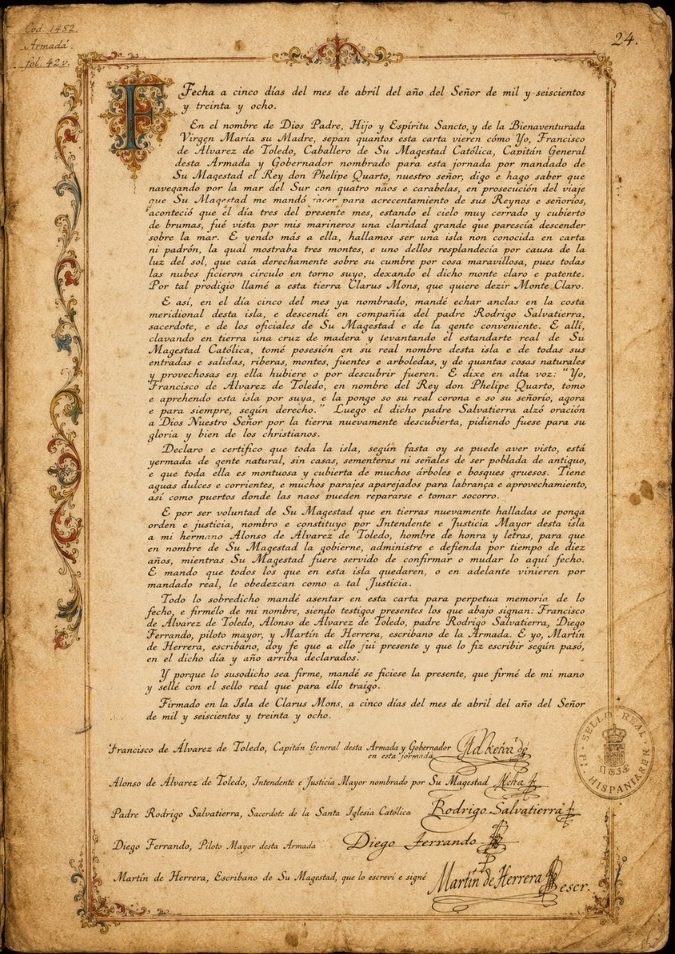 Cod. 1482.
Armada.
fol. 42v.
24.
Fecha a cinco días del mes de abril del año del Señor de mil y seiscientos
y treinta y ocho.
En el nombre de Dios Padre, Hijo y Espíritu Sancto, y de la Bienaventurada
Virgen María su Madre, sepan quantos esta carta vieren cómo Yo, Francisco
de Álvarez de Toledo, Caballero de Su Magestad Católica, Capitán General
desta Armada y Gobernador nombrado para esta jornada por mandado de
Su Magestad el Rey don Phelipe Quarto, nuestro señor, digo e hago saber que
navegando por la mar del Sur con quatro naos e carabelas, en prosecución del viaje
que Su Magestad me mandó facer para acrecentamiento de sus Reynos e señoríos,
aconteció que el día tres del presente mes, estando el cielo muy cerrado y cubierto
de brumas, fué vista por mis marineros una claridad grande que parescía descender
sobre la mar. E yendo más a ella, hallamos ser una isla non conocida en carta
ni padrón, la qual mostraba tres montes, e uno dellos resplandecía por causa de la
luz del sol, que caía derechamente sobre su cumbre por cosa maravillosa, pues todas
las nubes ficieron círculo en torno suyo, dexando el dicho monte claro e patente.
Por tal prodigio llamé a esta tierra Clarus Mons, que quiere dezir Monte Claro.
E así, en el día cinco del mes ya nombrado, mandé echar anclas en la costa
meridional desta isla, e descendí en compañía del padre Rodrigo Salvatierra,
sacerdote, e de los oficiales de Su Magestad e de la gente conveniente. E allí,
clavando en tierra una cruz de madera y levantando el estandarte real de Su
Magestad Católica, tomé posesión en su real nombre desta isla e de todas sus
entradas e salidas, riberas, montes, fuentes e arboledas, y de quantas cosas naturales
y provechosas en ella hubiere o por descubrir fueren. E dixe en alta voz: "Yo,
Francisco de Alvarez de Toledo, en nombre del Rey don Phelipe Quarto, tomo
e aprehendo esta isla por suya, e la pongo so su real corona e so su señorío, agora
e para siempre, según derecho." Luego el dicho padre Salvatierra alzó oración
a Dios Nuestro Señor por la tierra nuevamente descubierta, pidiendo fuese para su
gloria y bien de los christianos.
Declaro e certifico que toda la isla, según fasta oy se puede aver visto, está
yermada de gente natural, sin casas, sementeras ni señales de ser poblada de antiguo,
e que toda ella es montuosa y cubierta de muchos árboles e bosques gruesos. Tiene
aguas dulces e corrientes, e muchos parajes aparejados para labrança e aprovechimiento,
así como puertos donde las naos pueden repararse e tomar socorro.
E por ser voluntad de Su Magestad que en tierras nuevamente halladas se ponga
orden e justicia, nombro e constituyo por Intendente e Justicia Mayor desta isla
a mi hermano Alonso de Alvarez de Toledo, hombre de honra y letras, para que
en nombre de Su Magestad la gobierne, administre e defienda por tiempo de diez
años, mientras Su Magestad fuere servido de confirmar o mudar lo aquí fecho.
E mando que todos los que en esta isla quedaren, o en adelante vinieren por
mandado real, le obedezcan como a tal Justicia.
Todo lo sobredicho mandé asentar en esta carta para perpetua memoria de lo
fecho, e firmélo de mi nombre, siendo testigos presentes los que abajo signan: Francisco
de Alvarez de Toledo, Alonso de Alvarez de Toledo, padre Rodrigo Salvatierra, Diego
Ferrando, piloto mayor, y Martín de Herrera, escribano de la Armada. E yo, Martín
de Herrera, escribano, doy fe que a ello fui presente y que lo fiz escribir según pasó,
en el dicho día y año arriba declarados.
Y porque lo susodicho sea firme, mandé se ficiese la presente, que firmé de mi mano
y sellé con el sello real que para ello traigo.
Firmado en la Isla de Clarus Mons, a cinco días del mes de abril del año del Señor
de mil y seiscientos y treinta y ocho.
Francisco de Álvarez de Toledo, Capitán General desta Armada y Gobernador
en esta jornada
Alonso de Alvarez de Toledo, Intendente e Justicia Mayer nombrado por Su Magestad
Padre Rodrigo Salvatierra, Sacerdote de la Santa Iglesia Católica Rodrigo Salvatierra
Diego Ferrando, Piloto Mayor desta Armada Diego Ferrando
Martín de Herrera, Escribano de Su Magestad, que lo escreví e signé Martín de Herrera escr.
SELLO REAL
HISPANIA